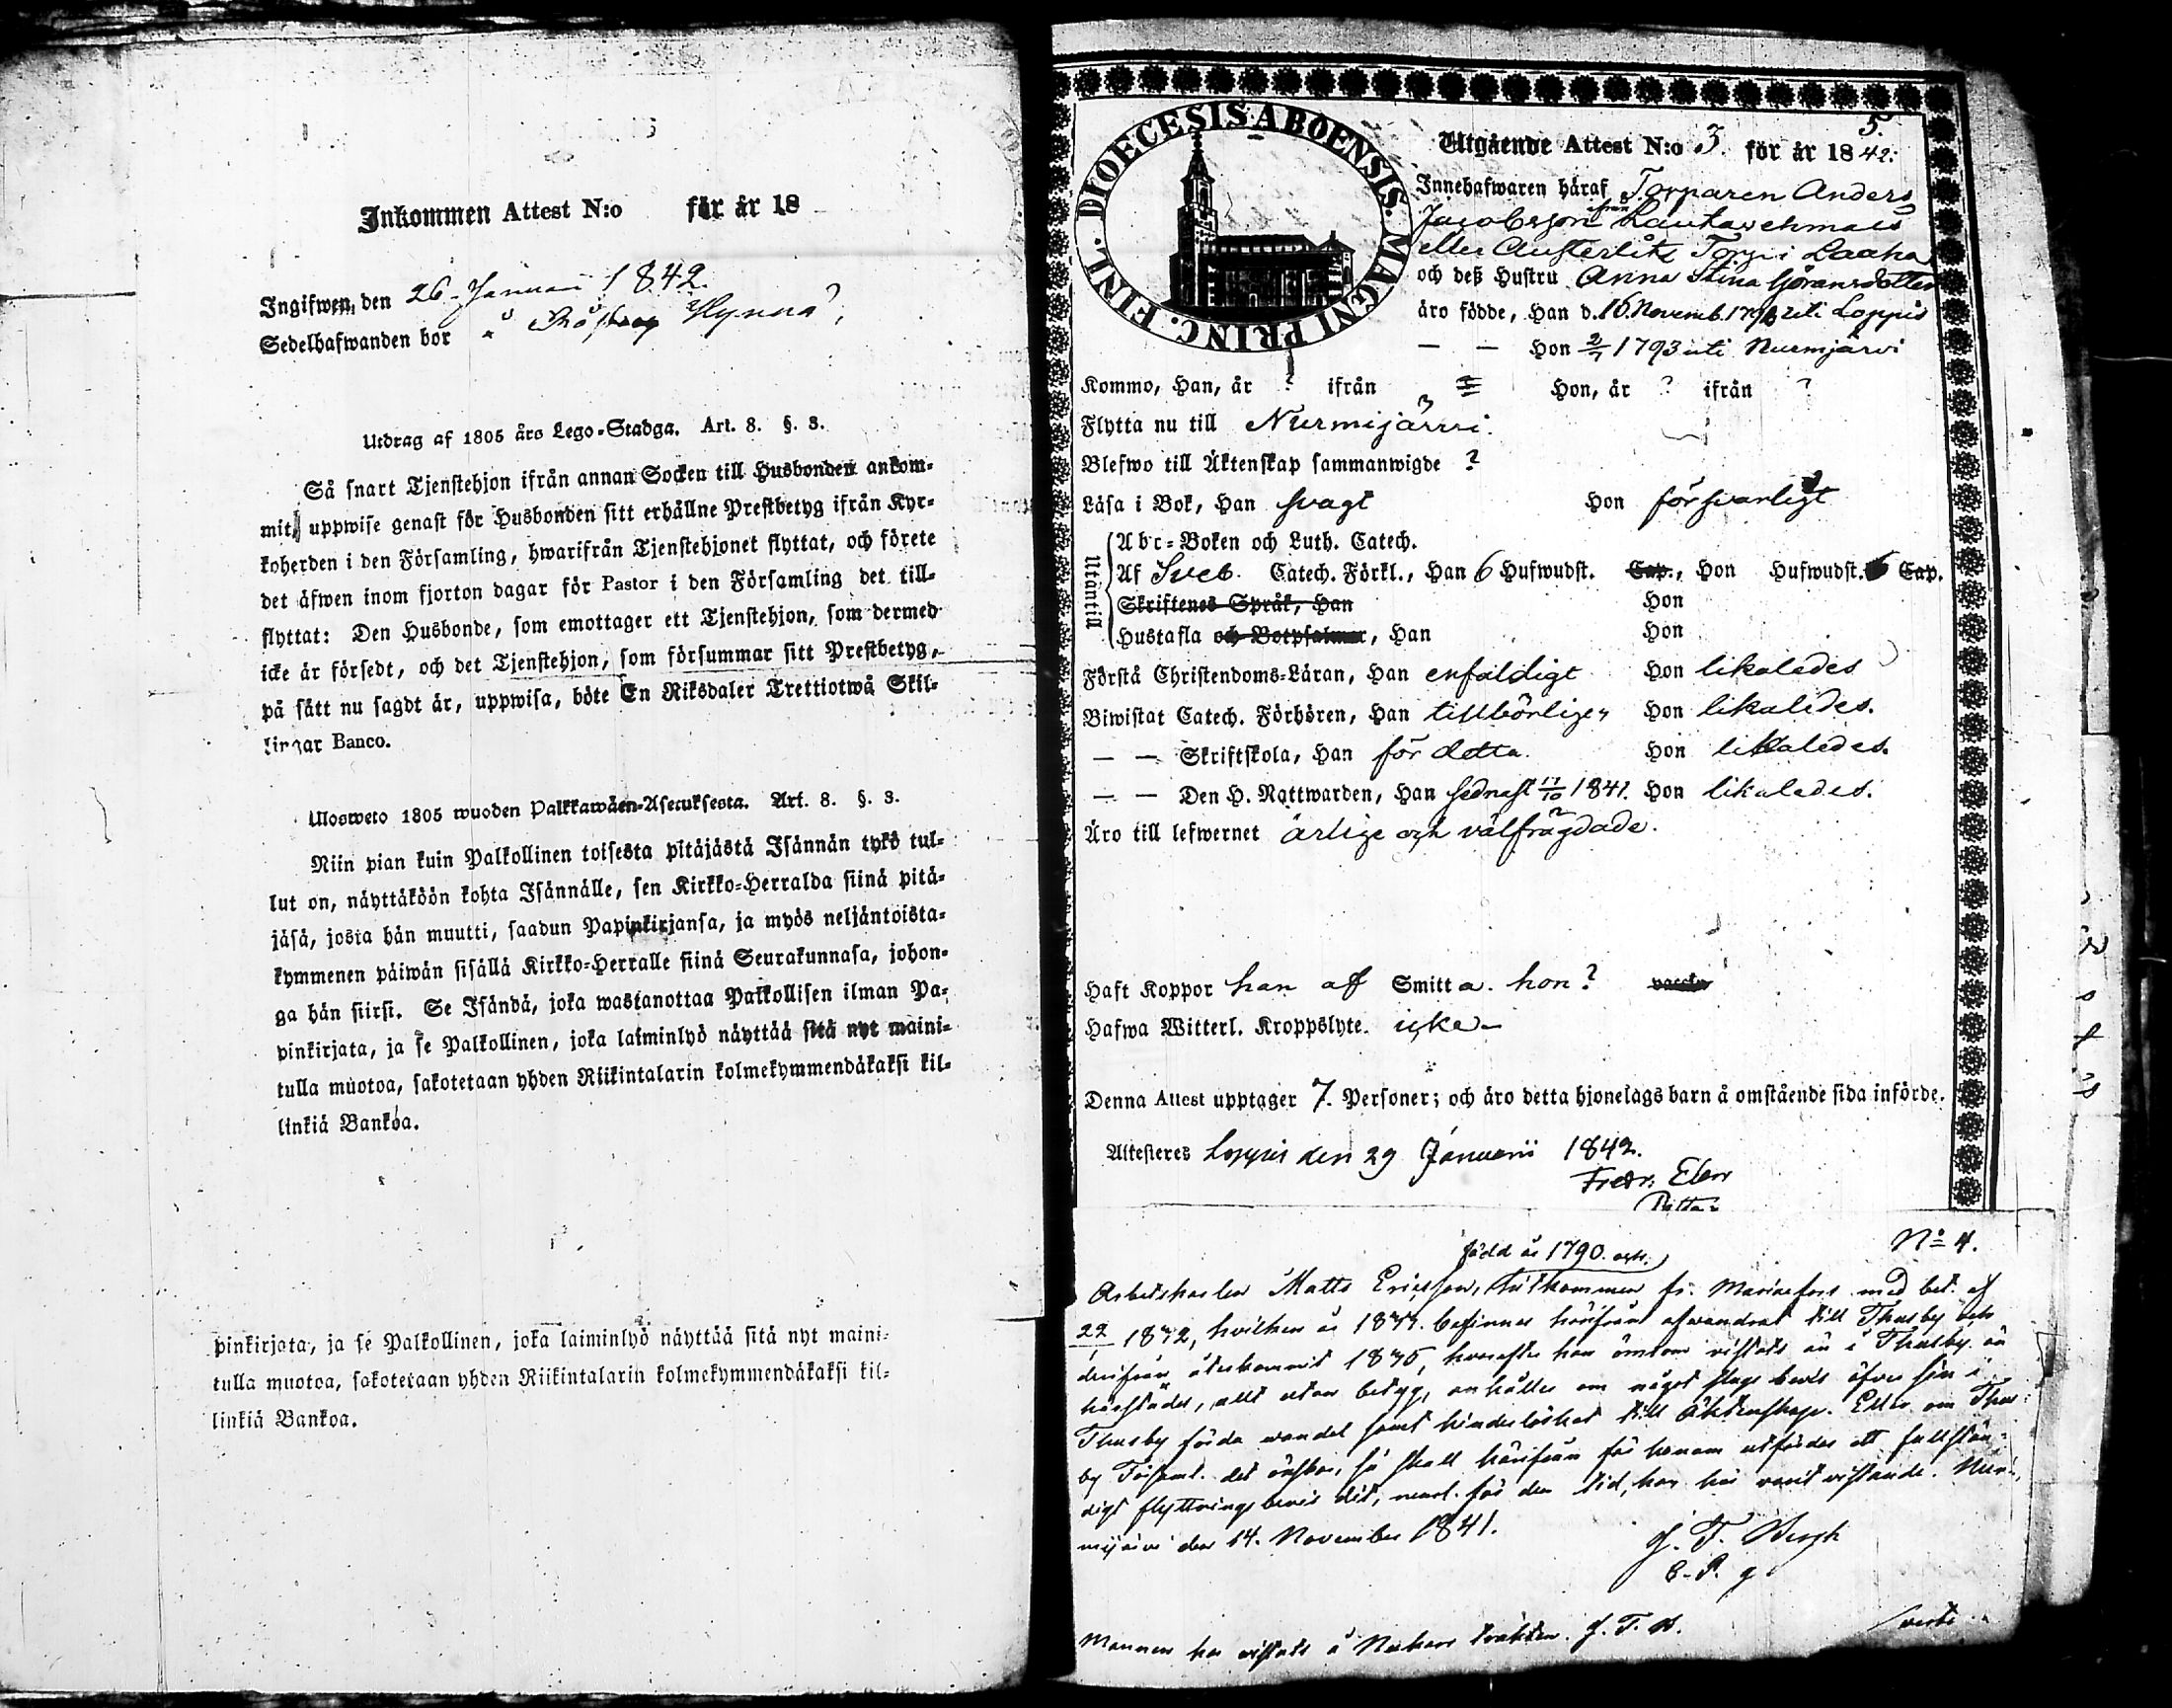 Inkommen Attest N:o för år 18
Ingifwen, den 26 Januari 1842.
Sedelhafwanden bor å
Utdrag af 1805 års Lego-Stadga. Art. 8. §. 3.
Så snart Tjenstehjon ifrån annan Socken till Husbonden ankom-
mit, uppwise genast för Husbonden sitt erhållne Prestbetyg ifrån Kyr-
koherden i den Församling, hwarifrån Tjenstehjonet flyttat, och förete
det äfwen inom fjorton dagar för Pastor i den Församling det till-
flyttat: Den Husbonde, som emottager ett Tjenstehjon, som dermed
icke är försedt, och det Tjenstehjon, som försummar sitt Prestbetyg,
på sätt nu sagdt är, uppwisa, böte En Riksdaler Trettiotwå Skil-
lingar Banco.
Ulosweto 1805 wuoden Palkkawäen-Asetuksesta. Art. 8. §. 3.
Niin pian kuin Palkollinen toisesta pitäjästä Isännän tykö tul-
lut on, näyttäköön kohta Isännälle, sen Kirkko-Herralda siinä pitä-
jäsä, josta hän muutti, saadun Papinkirjansa, ja myös neljäntoista-
kymmenen päiwän sisällä Kirkko-Herralle siinä Seurakunnasa, johon-
ga hän siirsi. Se Isändä, joka wastanottaa Palkollisen ilman Pa-
pinkirjata, ja se Palkollinen, joka laiminlyö näyttää sitä nyt maini-
tulla muotoa, sakotetaan yhden Riikintalarin kolmekymmendäkaksi kil-
linkiä Bankoa.
pinkirjata, ja se Palkollinen, joka laiminlyö näyttää sitä nyt maini-
tulla muotoa, sakotetaan yhden Riikintalarin kolmekymmendäkaksi kil-
linkiä Bankoa.
DIOECESIS ABOENSIS. MAGNI PRINC. FINL.
5.
Utgående Attest N:o 3. för år 1842.
Innehafwaren häraf Torparen Anders
Jacobsson från Lautawehmais
eller Austerlitz Torp i Laaka
och deß Hustru Anna Stina Göransdotter
äro födde, Han d. 16 Novemb. 179 uti Loppis
— — Hon 2/7 1793 uti Nurmijärvi
Kommo, Han, år ? ifrån Hon, år ? ifrån ?
Flytta nu till Nurmijärvi.
Blefwo till Äktenskap sammanwigde ?
Läsa i Bok, Han svagt Hon försvarligt
Utantill
Abc-Boken och Luth. Catech.
Af Sveb. Catech. Förkl., Han 6 Hufwudst. Cap., Hon Hufwudst. 6 Cap.
Skriftenes Språk, Han Hon
Hustafla och Botpsalmer, Han Hon
Förstå Christendoms-Läran, Han enfaldigt Hon likaledes
Biwistat Catech. Förhören, Han tillbörligen Hon likaledes.
— — Skriftskola, Han för detta Hon likaledes.
— — Den H. Nattwarden, Han sednast 17/10 1841. Hon likaledes.
Äro till lefwernet ärlige och välfrägdade.
Haft Koppor han af Smitta. hon ?
Hafwa Witterl. Kroppslyte. icke
Denna Attest upptager 7. Personer; och äro detta hjonelags barn å omstående sida införde.
Attesteres Loppis den 29 Januarii 1842.
Fredr.
född år 1790.
No 4.
Arbetskarlen Matts Ericsson, hitkommen fr. Mariefors med bet. af
22 1832, hvilken år befinnes härifrån afvandrat till Thusby och
derifrån återkommit 183, hvarefter han vistats än i Thusby än
härstädes, allt utan betyg, anhåller om något slags bevis öfver sin i
Thusby förda vandel samt hinderlöshet till Äktenskap. om Thus-
by det önskar, så skall härifrån för honom utfärdas ett fullstän-
digt flyttningsbevis dit, för den tid, han här varit vistande. Nur-
mijärvi den 14. November 1841.
J. F. Bergh
Mannen har vistats å trakten. J. F. B.